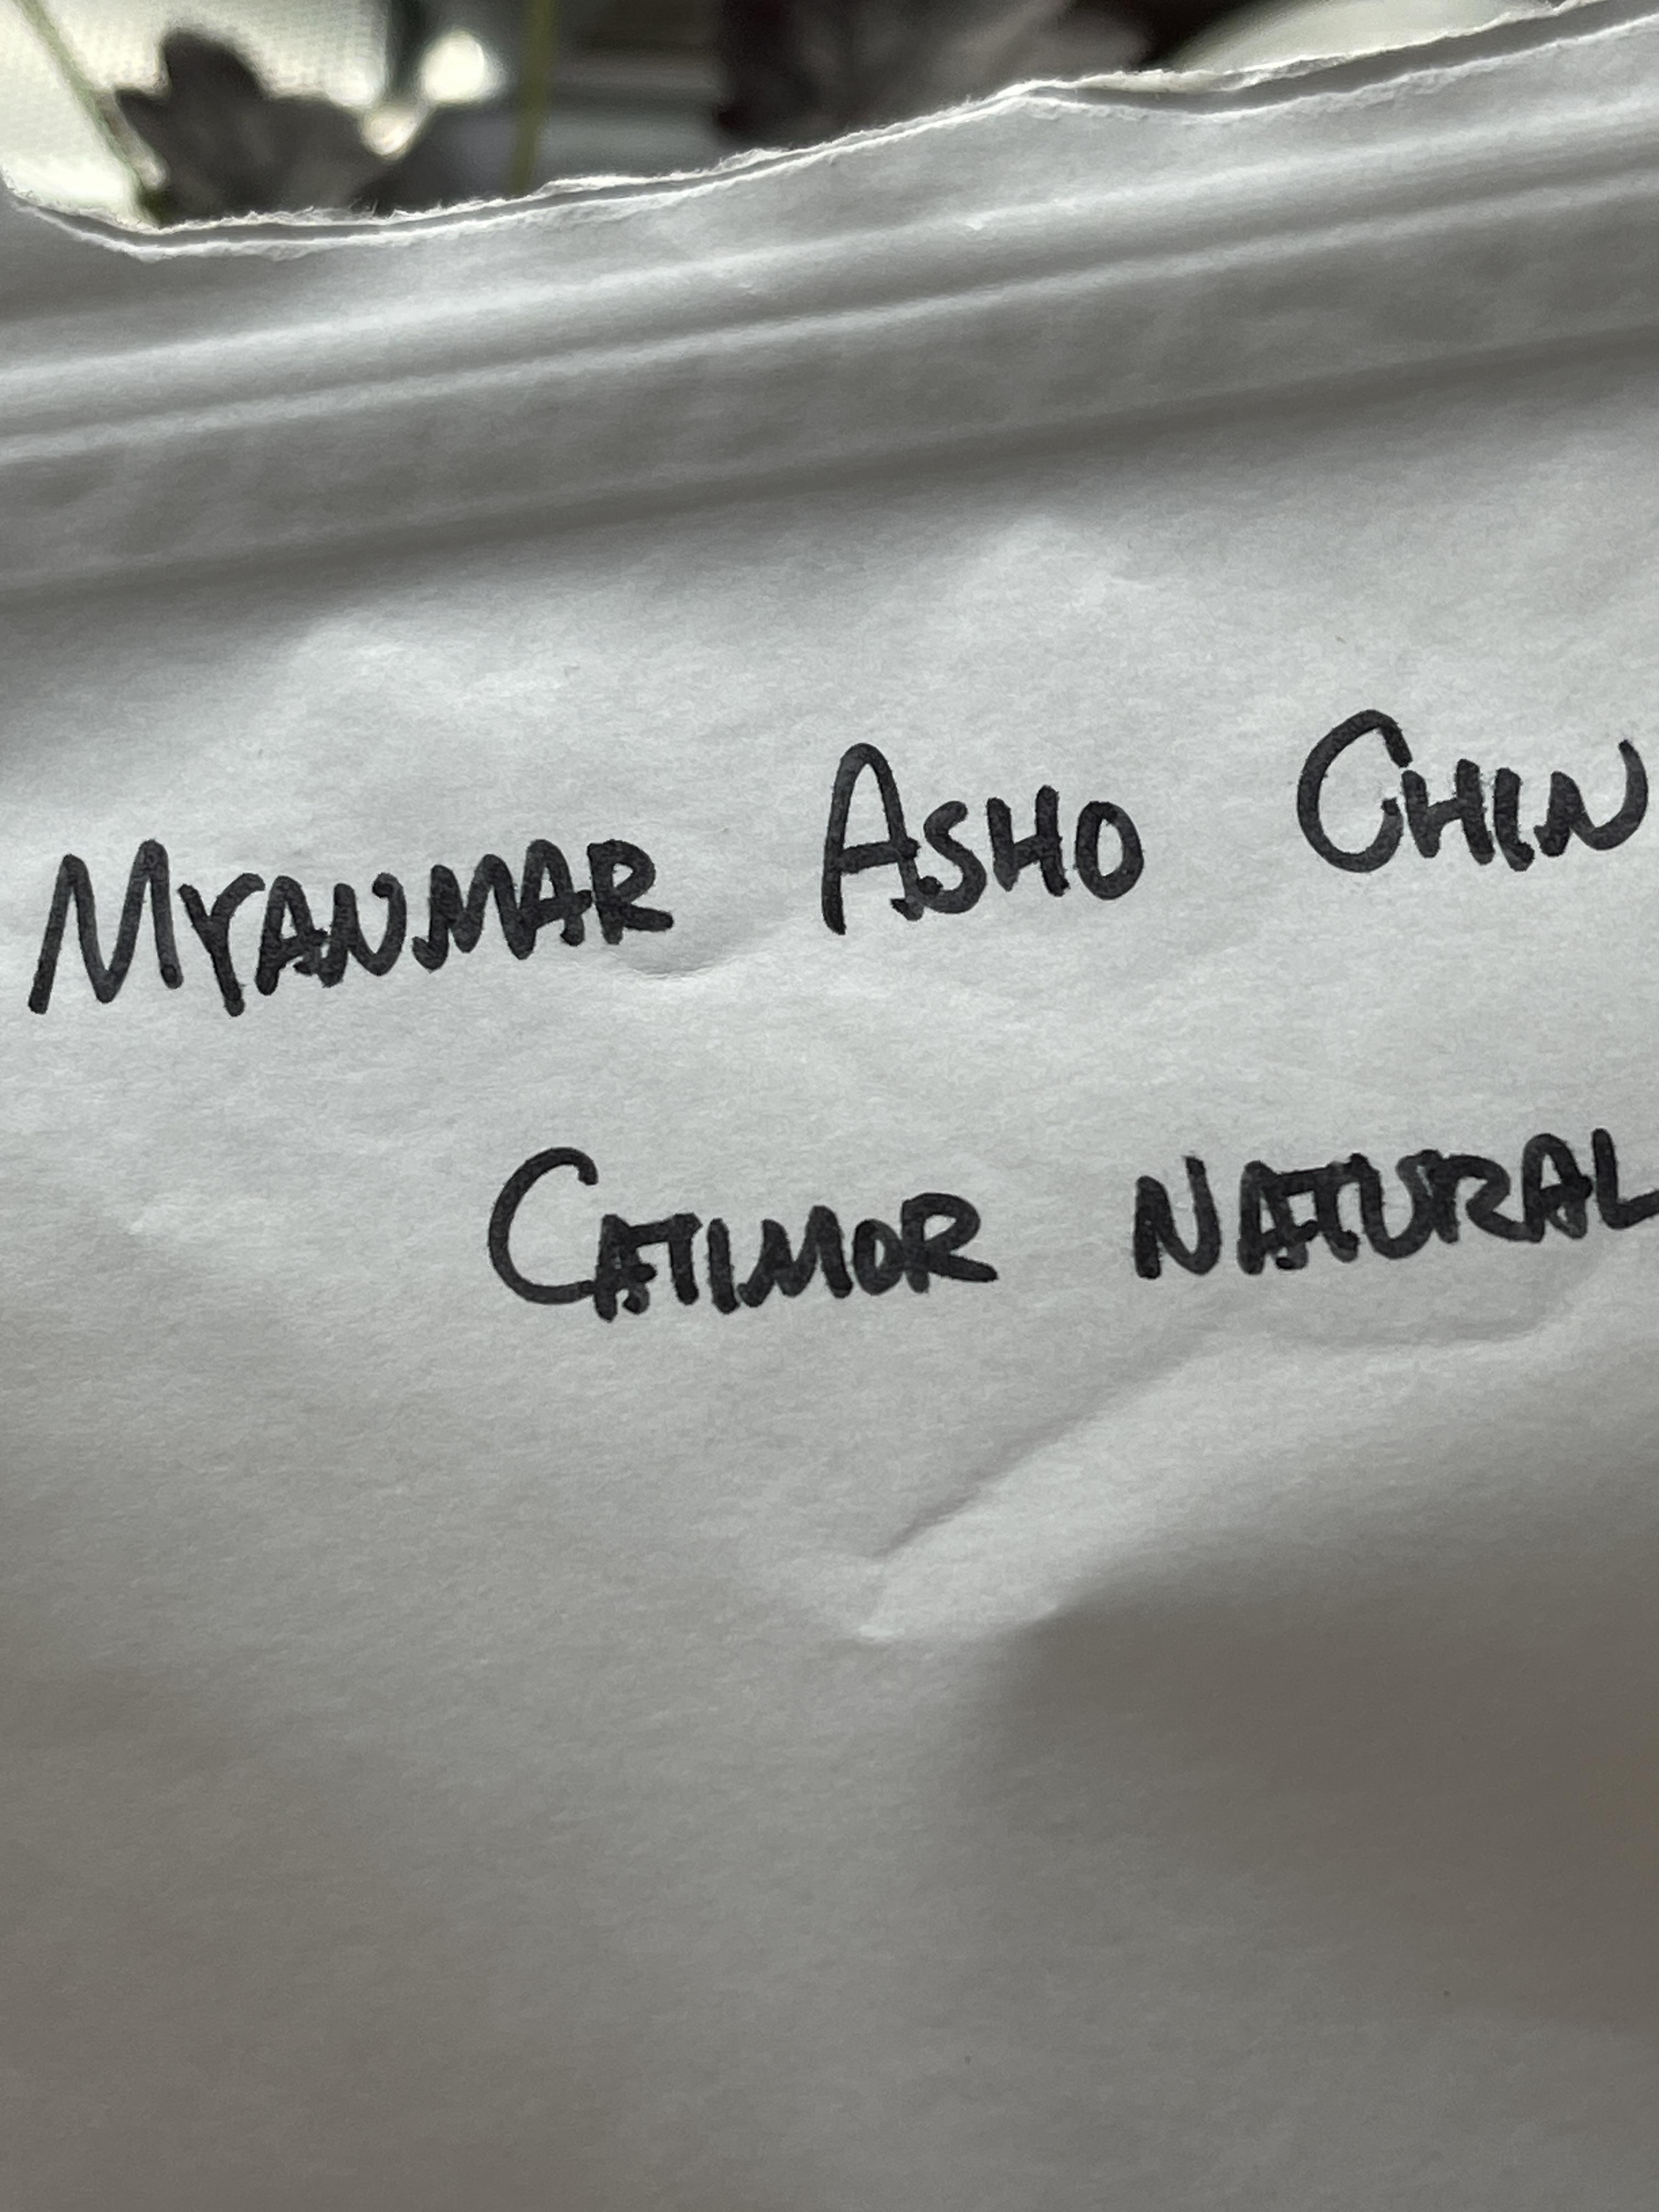 MYANMAR ASHO CHIN
CATIMOR NATURAL